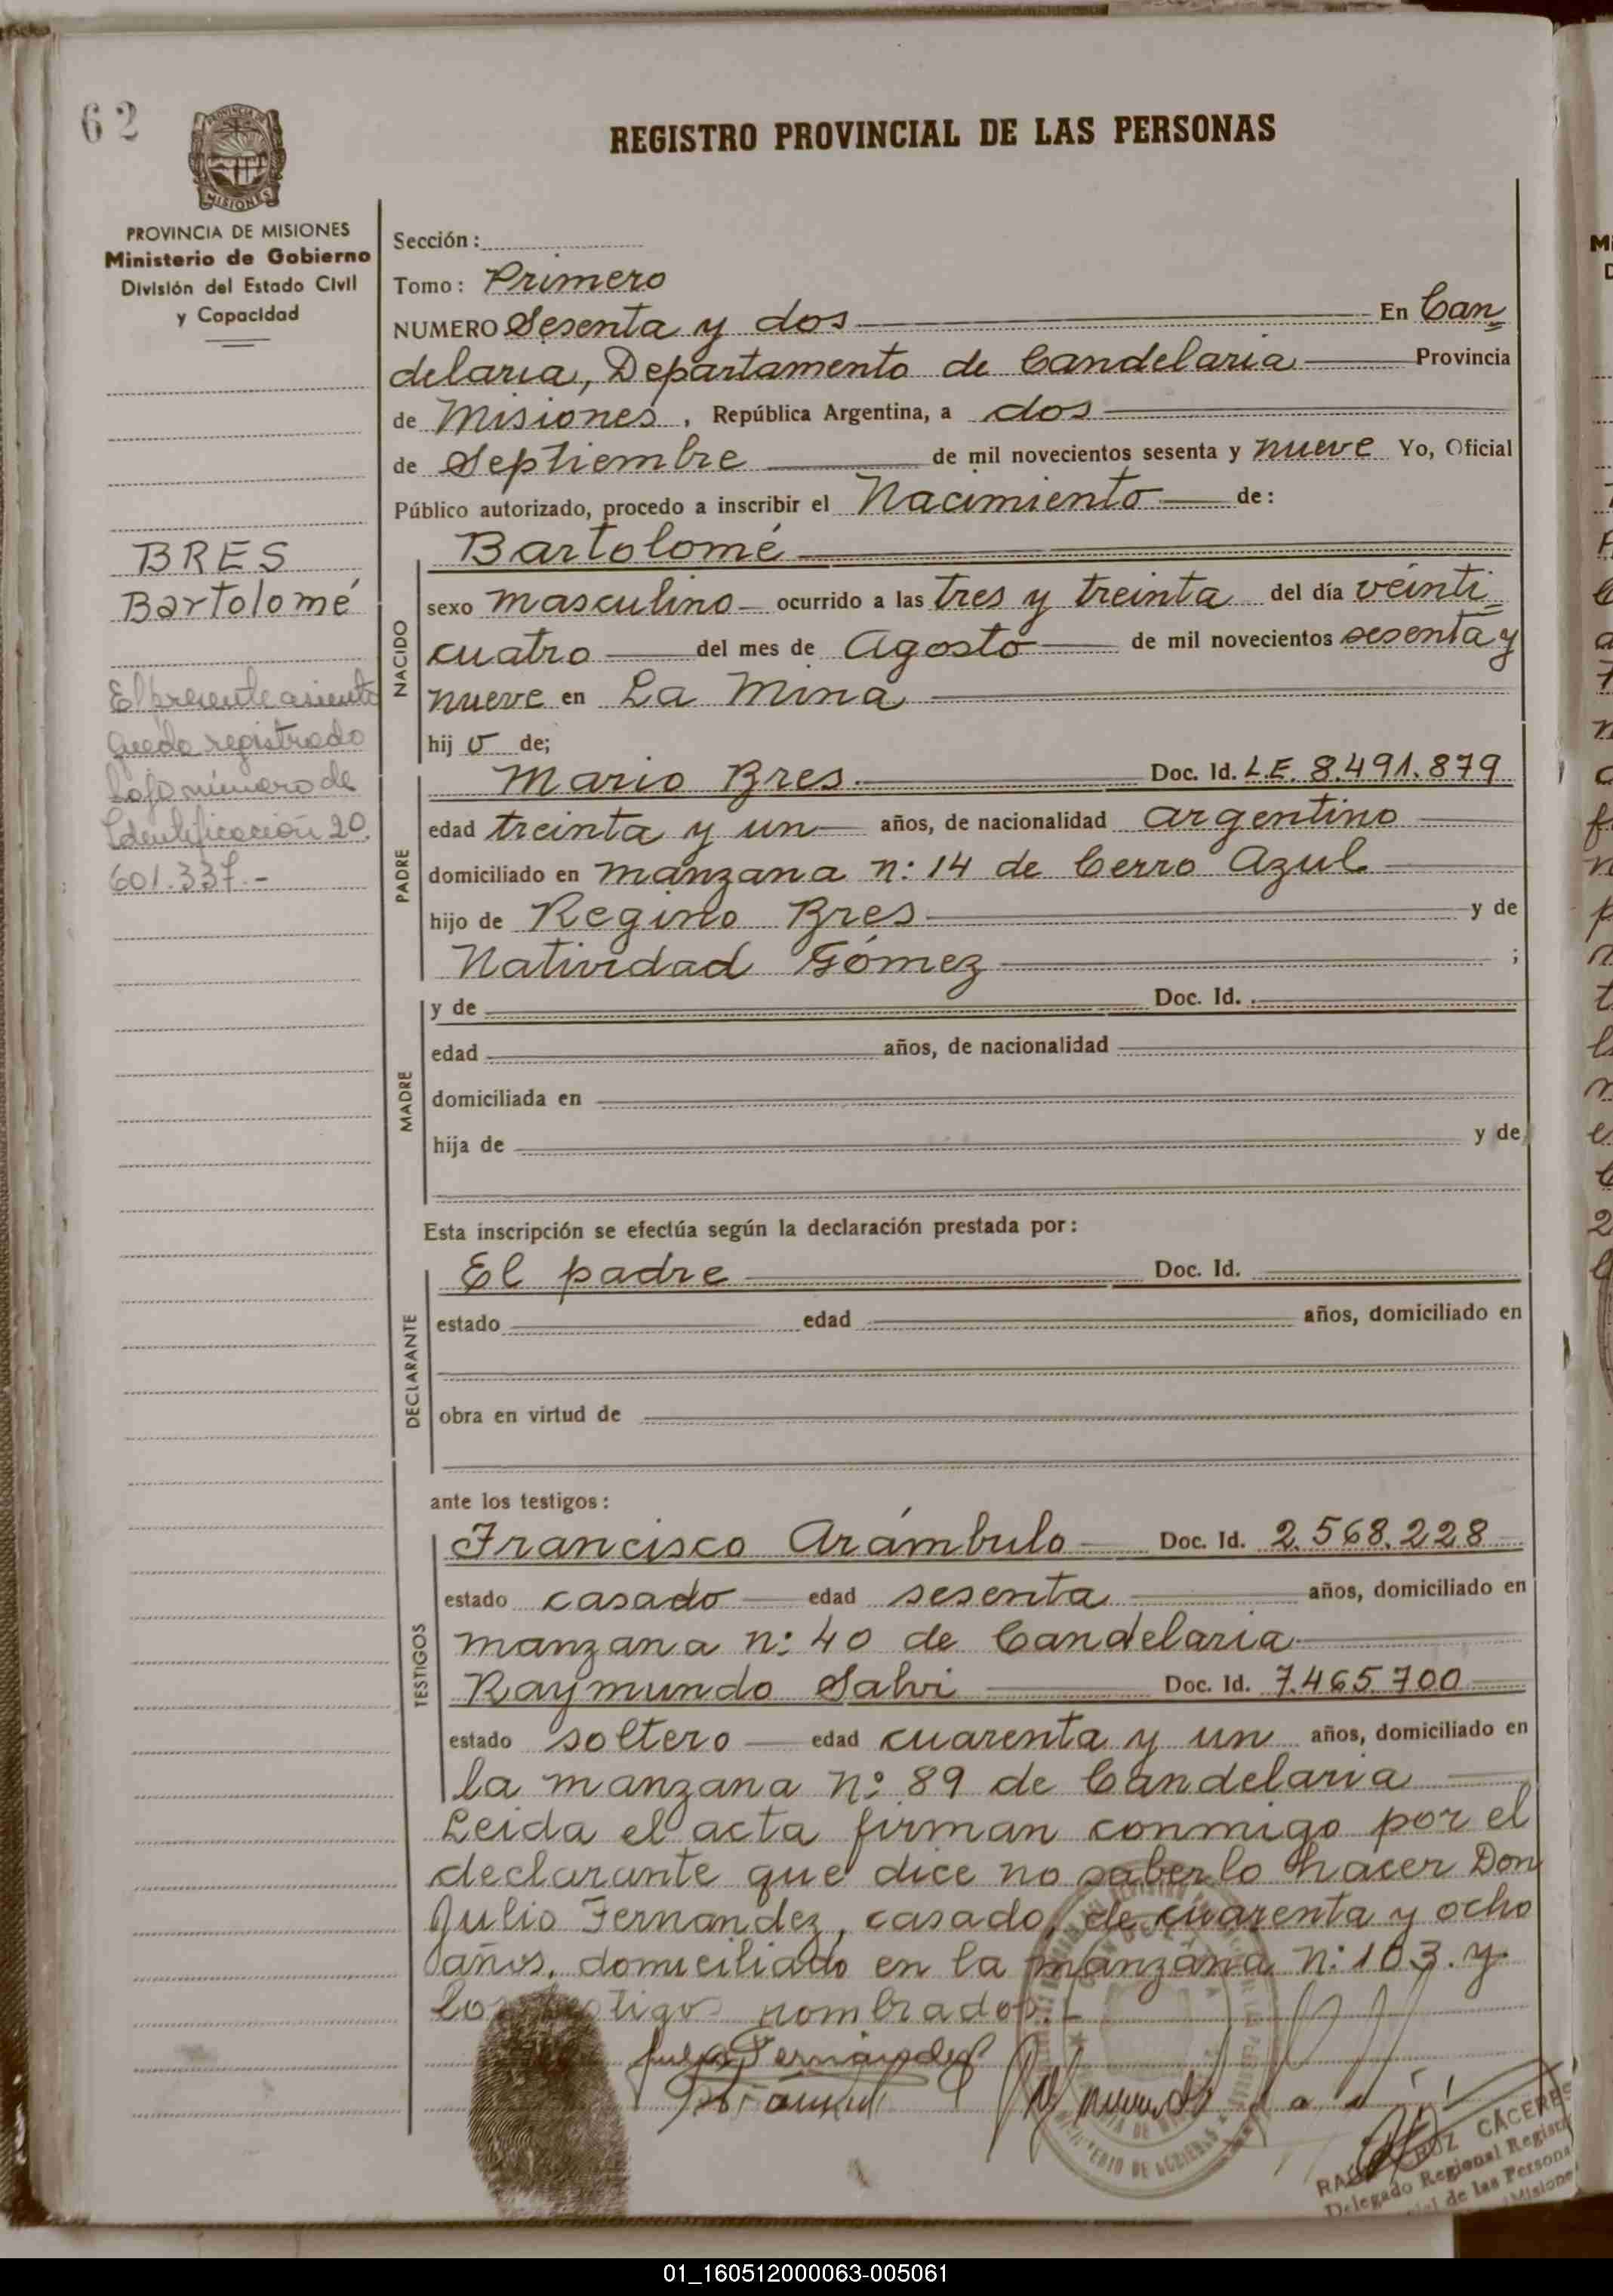 62
PROVINCIA DE MISIONES
Ministerio de Gobierno
División del Estado Civil
y Capacidad
BRES
Bartolomé
El presente asiento
queda registrado
bajo número de
Identificación 20.
601.337.-
REGISTRO PROVINCIAL DE LAS PERSONAS
Sección:
Tomo: Primero
NUMERO Sesenta y dos En Can=
delaria, Departamento de Candelaria Provincia
de Misiones, República Argentina, a dos
de Septiembre de mil novecientos sesenta y nueve Yo, Oficial
Público autorizado, procedo a inscribir el Nacimiento de:
NACIDO
Bartolomé
sexo masculino ocurrido a las tres y treinta del día veinti=
cuatro del mes de Agosto de mil novecientos sesenta y
nueve en La Mina
hij o de;
PADRE
Mario Bres Doc. Id. L.E. 8.491.879
edad treinta y un años, de nacionalidad argentino
domiciliado en manzana n: 14 de Cerro Azul
hijo de Regino Bres y de
Natividad Gómez ;
MADRE
y de Doc. Id.
edad años, de nacionalidad
domiciliada en
hija de y de
Esta inscripción se efectúa según la declaración prestada por:
DECLARANTE
El padre Doc. Id.
estado edad años, domiciliado en
obra en virtud de
ante los testigos:
TESTIGOS
Francisco Arámbulo Doc. Id. 2.568.228
estado casado edad sesenta años, domiciliado en
manzana n: 40 de Candelaria
Raymundo Salvi Doc. Id. 7.465.700
estado soltero edad cuarenta y un años, domiciliado en
la manzana nº 89 de Candelaria
Leida el acta firman conmigo por el
declarante que dice no saberlo hacer Don
Julio Fernandez, casado, de cuarenta y ocho
años, domiciliado en la manzana n: 103. y
los testigos nombrados.-
Julio Fernandez
CACERES
Delegado Regional
de las
01_160512000063-005061